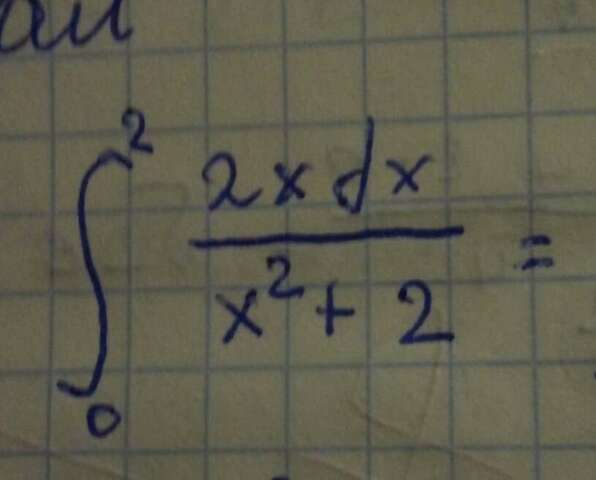 ∫₀² 2x dx / (x² + 2) =